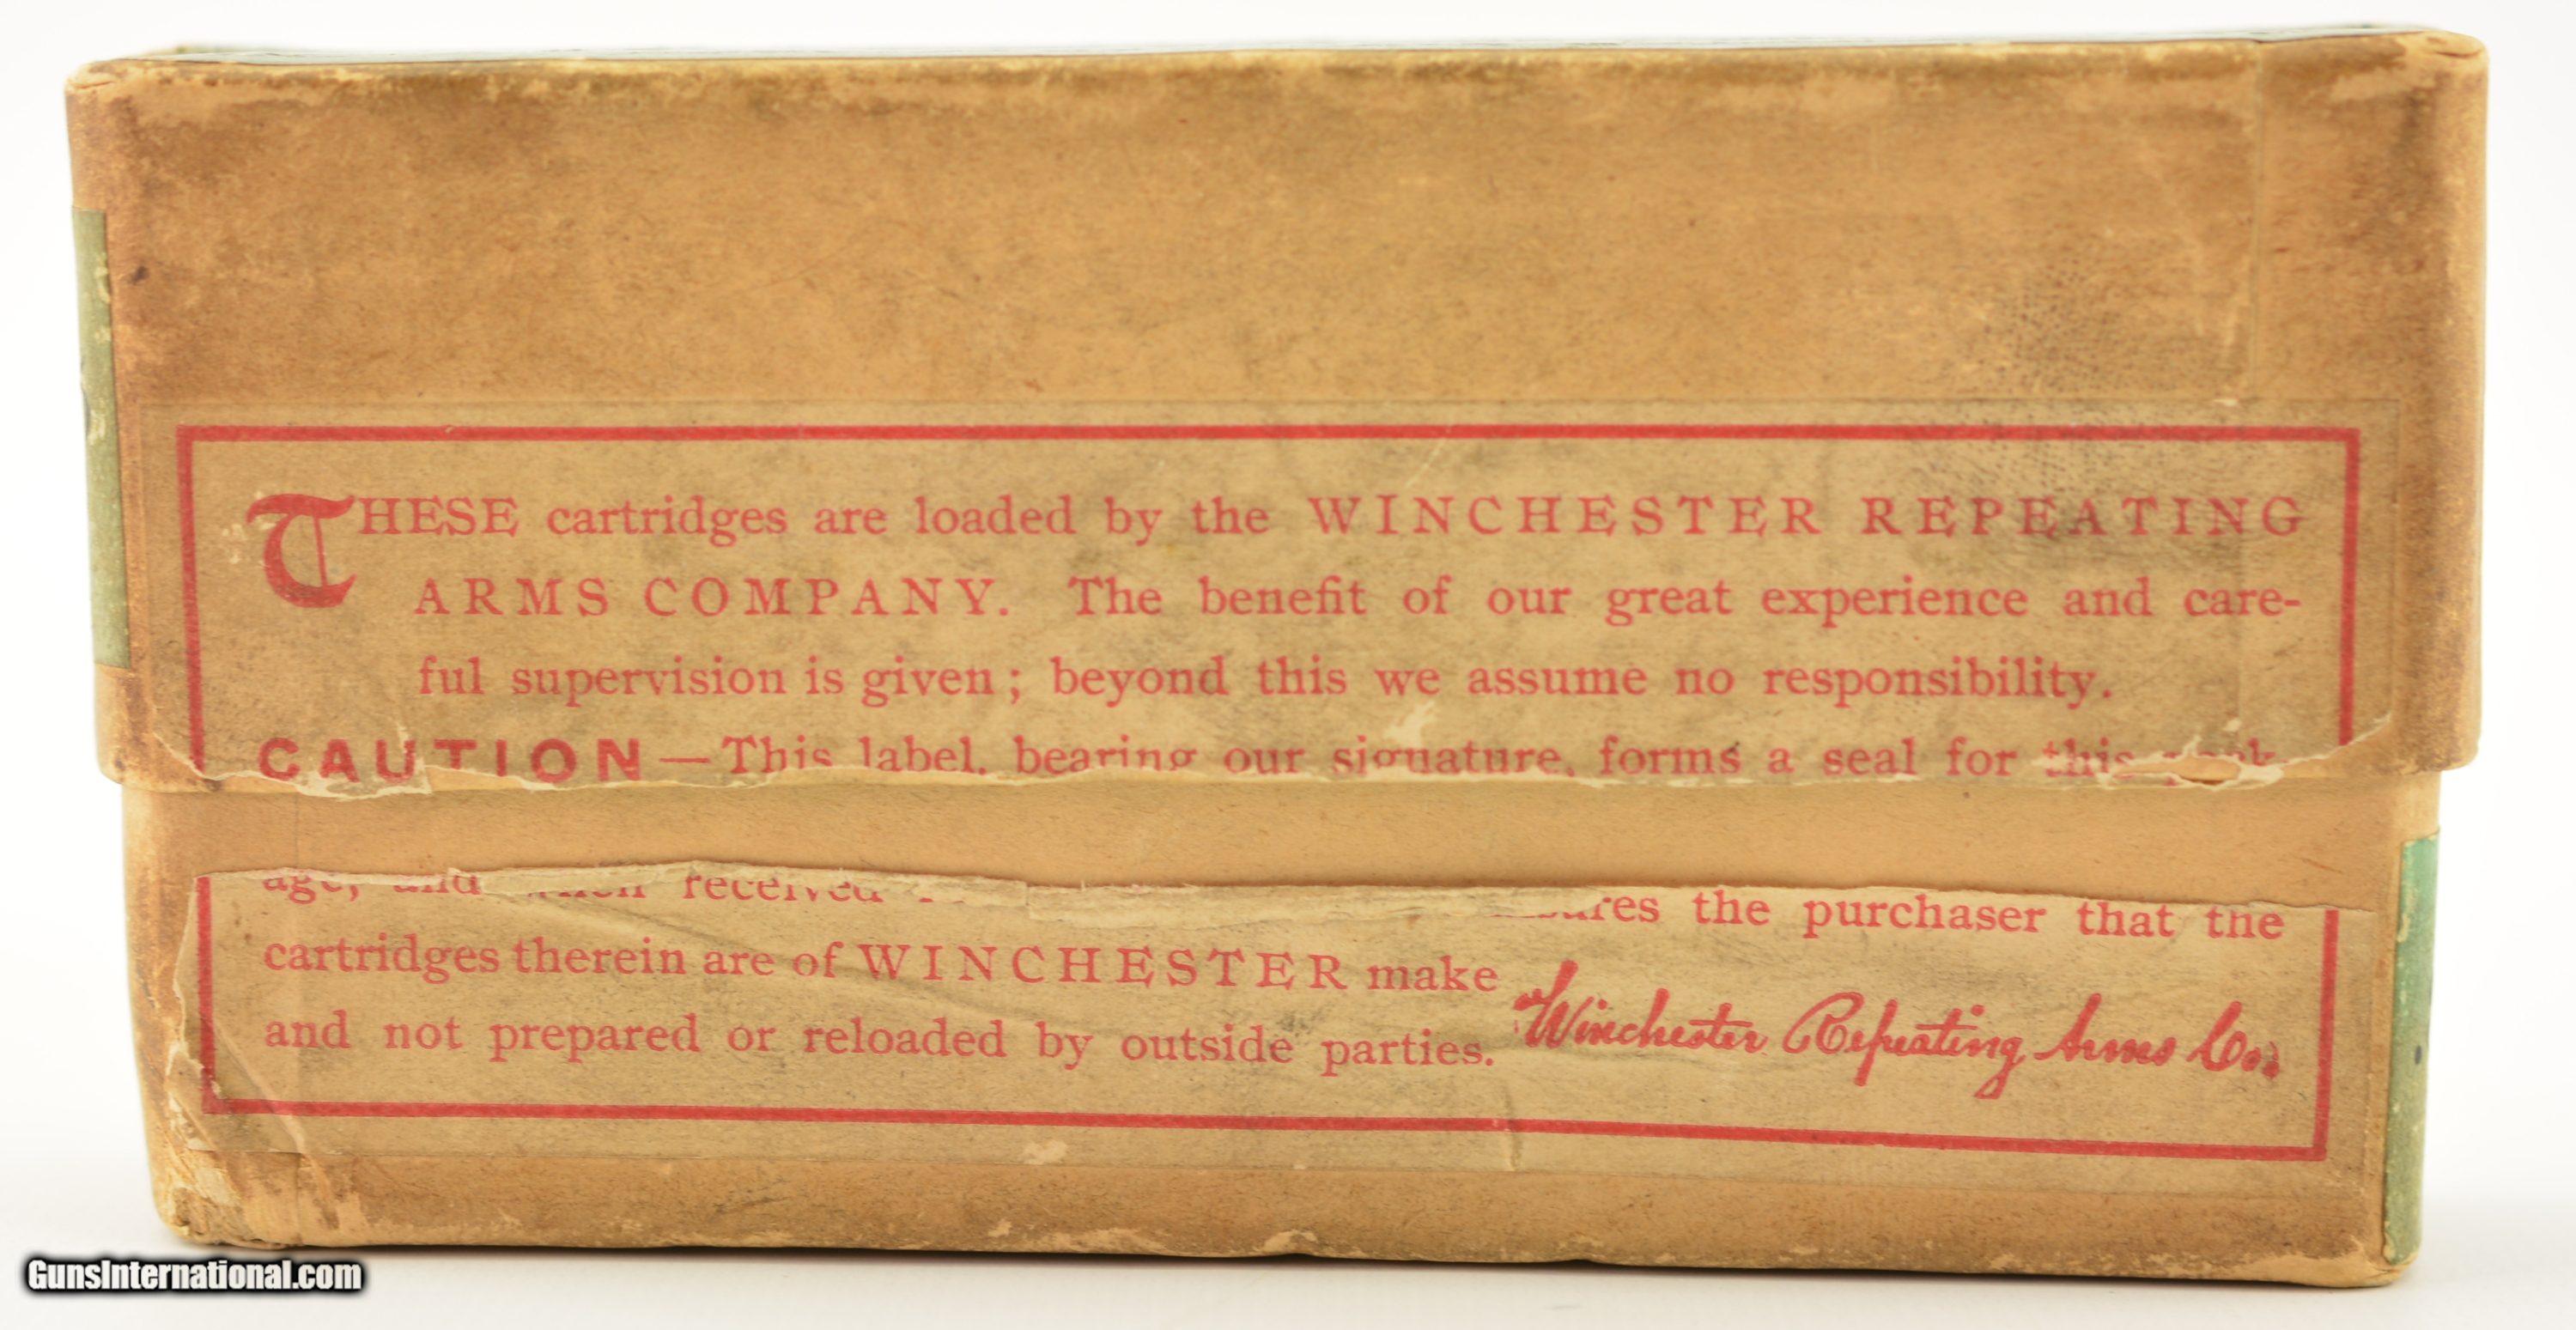 THESE cartridges are loaded by the WINCHESTER REPEATING
ARMS COMPANY. The benefit of our great experience and care-
ful supervision is given; beyond this we assume no responsibility.
CAUTION—This label, bearing our signature, forms a seal for this
age, and when received
the purchaser that the
cartridges therein are of WINCHESTER make
and not prepared or reloaded by outside parties.
Winchester Repeating Arms Co.
GunsInternational.com